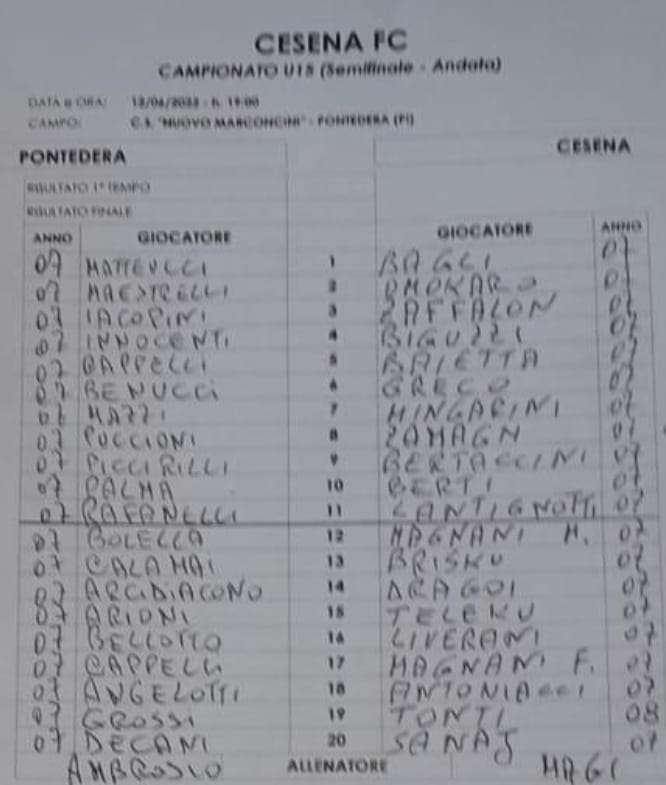 CESENA FC
CAMPIONATO U15 (Semifinale - Andata)
DATA e ORA: - h. 19:00
CAMPO: C.S. "NUOVO MARCONCINI" - PONTEDERA (PI)
PONTEDERA CESENA
RISULTATO 1° TEMPO
RISULTATO FINALE
ANNO GIOCATORE GIOCATORE ANNO
07 MATTEUCCI 1 BAGLI 07
07 MAESTRELLI 2 07
07 IACOPINI 3 ZAFFALON 07
07 INNOCENTI 4 BIGUZZI 07
07 CAPPELLI 5 BAIETTA 07
07 BENUCCI 6 GRECO 07
07 MAZZI 7 MINGARINI 07
07 PUCCIONI 8 ZAMAGN 07
07 PICCIRILLI 9 BERTACCINI 07
07 PALMA 10 BERTI 07
07 RAFANELLI 11 LANTIGNOTTI 07
07 BOLELLA 12 MAGNANI M. 07
07 CALAMAI 13 BRISKU 07
07 ARCIDIACONO 14 DRAGOI 07
07 ARIONI 15 TELEKU 07
07 BELLOTTO 16 LIVERANI 07
07 CAPPELLI 17 MAGNANI F. 07
07 ANGELOTTI 18 ANTONIACCI 07
07 GROSSI 19 TONTI 08
07 DECANI 20 SANAJ 07
AMBROSIO ALLENATORE MAGI